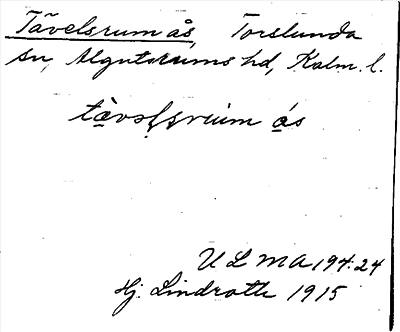 Tävelsrum ås, Torslunda
sn, Algutsrums hd, Kalm. l.
tàvəḷsrùm ás
ULMA 194:24
Hj. Lindroth 1915